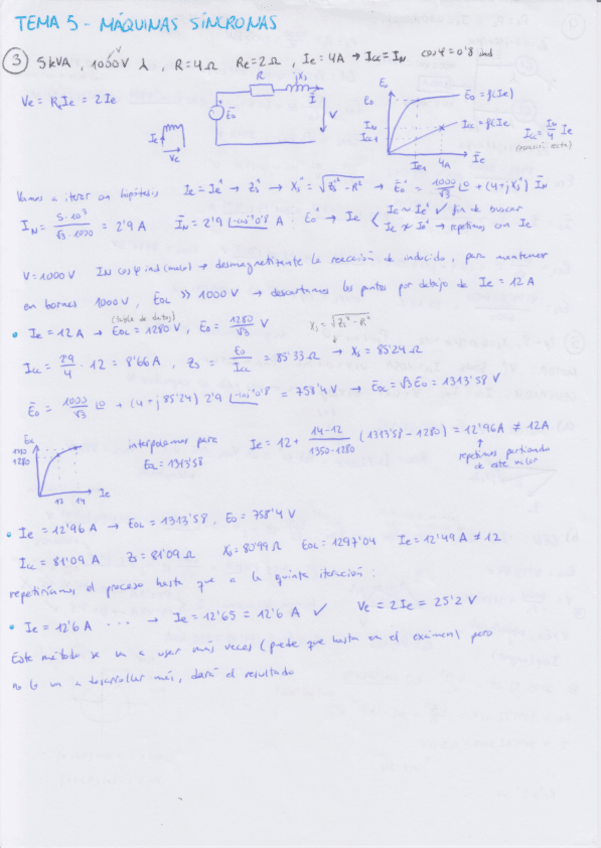 TEMA 5 - MÁQUINAS SÍNCRONAS
③ 5 kVA, 1000V ⅄, R=4Ω Re=2Ω, Ie=4A → Icc=IN cosφ=0'8 ind
Ve = Re Ie = 2Ie
R jXs
Ēo Ī V
Ie
Ve
Eo
Eo
IN
Icc1
Ie1 4A Ie
Eo=f(Ie)
Icc=f(Ie)
Icc = IN/4 Ie
(relación recta)
Vamos a iterar con hipótesis Ie = Ie' → Zs' → Xs' = √(Zs'² - R²) → Ēo' = 1000/√3 ∟0 + (4+jXs') ĪN
IN = 5·10³/(√3·1000) = 2'9 A ĪN = 2'9 ∟-acos 0'8 A · Eo' → Ie < Ie ≈ Ie' ✓ fin de trazar
Ie ≠ Ie' → repetimos con Ie
V=1000V IN cosφ ind → desmagnetizante la reacción de inducido, para mantener
en bornes 1000V, EoL >> 1000V → descartamos los puntos por debajo de Ie = 12A
(tabla de datos)
• Ie = 12A → EoL = 1280V, Eo = 1280/√3 V
Xs = √(Zs² - R²)
Icc = 2'9/4 · 12 = 8'66A, Zs = Eo/Icc = 85'33Ω → Xs = 85'24Ω
Ēo = 1000/√3 ∟0 + (4+j85'24) 2'9 ∟-acos 0'8 = 758'4V → EoL = √3 Eo = 1313'58V
1350
1280
12 14 Ie
interpolamos para
EoL = 1313'58
Ie = 12 + (14-12)/(1350-1280) (1313'58-1280) = 12'96A ≠ 12A
repetimos partiendo
de este valor
• Ie = 12'96A → EoL = 1313'58, Eo = 758'4V
Icc = 81'09A Zs = 81'09Ω Xs = 80'99Ω EoL = 1297'04 Ie = 12'49A ≠ 12
repetiríamos el proceso hasta que a la quinta iteración:
• Ie = 12'6A ... → Ie = 12'65 = 12'6A ✓ Ve = 2Ie = 25'2V
Este método se va a usar más veces (puede que hasta en el examen) pero
no lo va a desarrollar más, dará el resultado